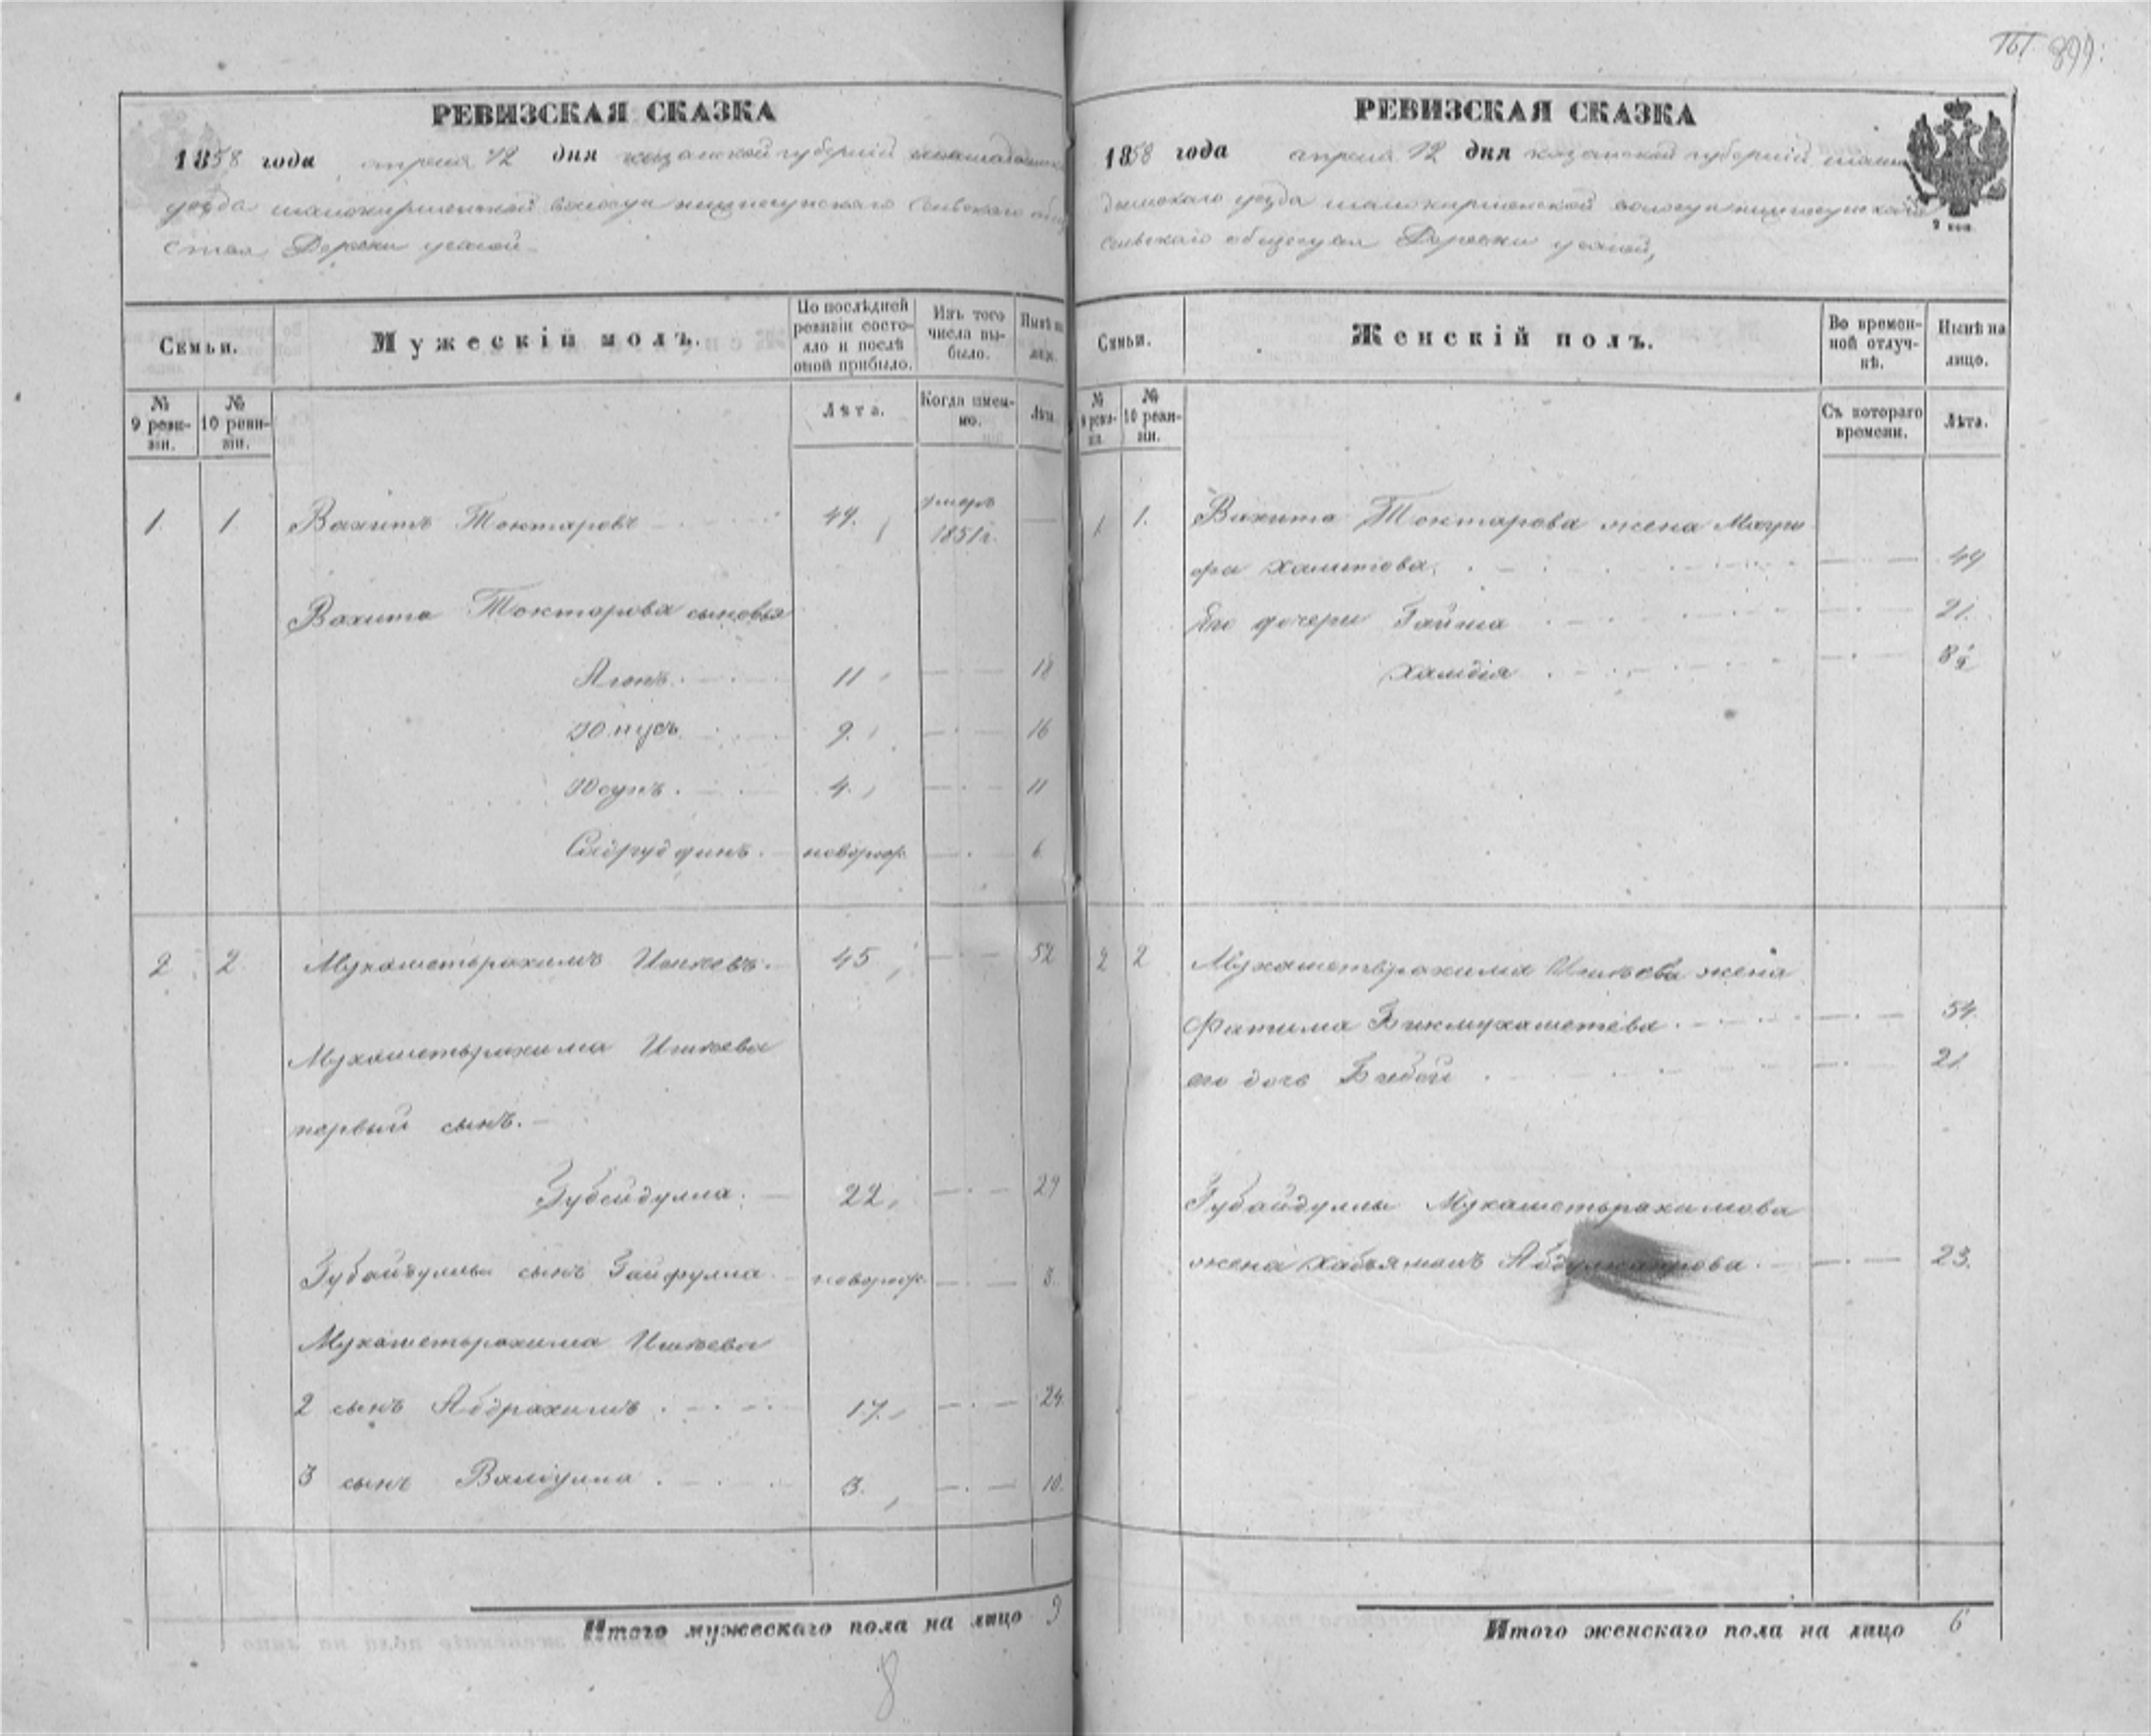 899.
РЕВИЗСКАЯ СКАЗКА
1858 года апреля 12 дня казанской губернiи
уезда волости сельскаго
ства Деревни
Семьи.
Мужескій полъ.
По послѣдней ревизіи состояло и послѣ оной прибыло.
Изъ того числа выбыло.
Нынѣ на лицо.
№ 9 ревизіи.
№ 10 ревизіи.
Лѣта.
Когда именно.
Лѣта.
1. 1. Вахитъ Токтаровъ 49. умеръ 1851 г.
Вахита Токтарова сыновья
Аюпъ. 11 18
Юнусъ 9. 16
Юсупъ. 4. 11
Садрудинъ. новорож. 6.
2. 2. Мухаметьрахимъ Ишкевъ. 45 52
Мухаметьрахима Ишкева
первый сынъ.
Зубейдулла. 22, 29
Зубайдуллы сынъ Зайфулла новорож. 3.
Мухаметьрахима Ишкева
2 сынъ Абдрахимъ 17. 24.
3 сынъ Валиулла 3. 10.
Итого мужескаго пола на лицо 9
8
РЕВИЗСКАЯ СКАЗКА
1858 года апреля 12 дня казанской губернiи
уезда волости
сельскаго общества Деревни
2 коп.
Семьи.
Женскій полъ.
Во временной отлучкѣ.
Нынѣ на лицо.
№ 9 ревизіи.
№ 10 ревизіи.
Съ котораго времени.
Лѣта.
1. 1. Вахита Токтарова жена Магру
фа Халитова. 49
Его дочери Гайша 21.
Халидiя 8½
2 2 Мухаметьрахима Ишкева жена
Фатима Бикмухаметева 54.
его дочь Бибой 21
Зубайдуллы Мухаметьрахимова
жена Хабзямалъ 23.
Итого женскаго пола на лицо 6